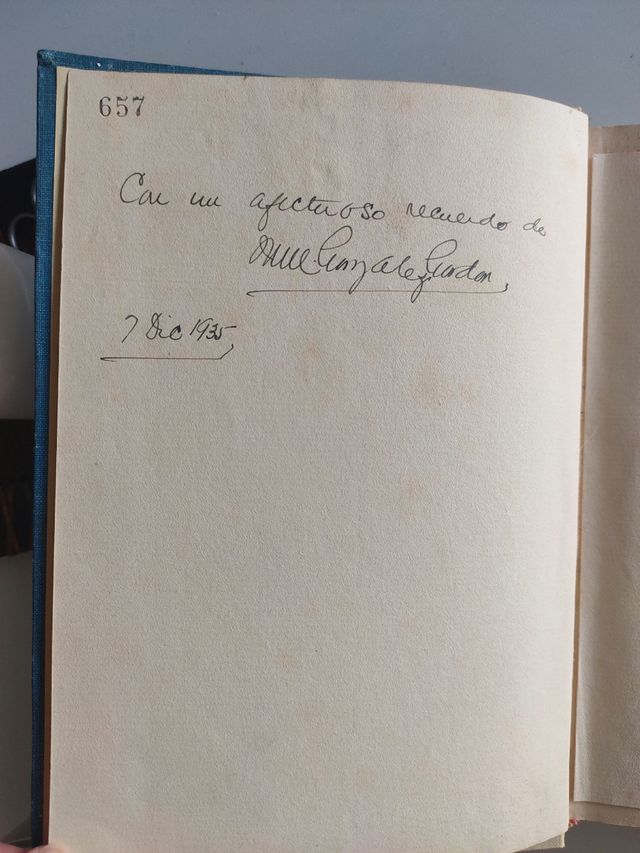 657
Con un afectuoso recuerdo de
Gonzalez Gordon,
7 Dic 1935,